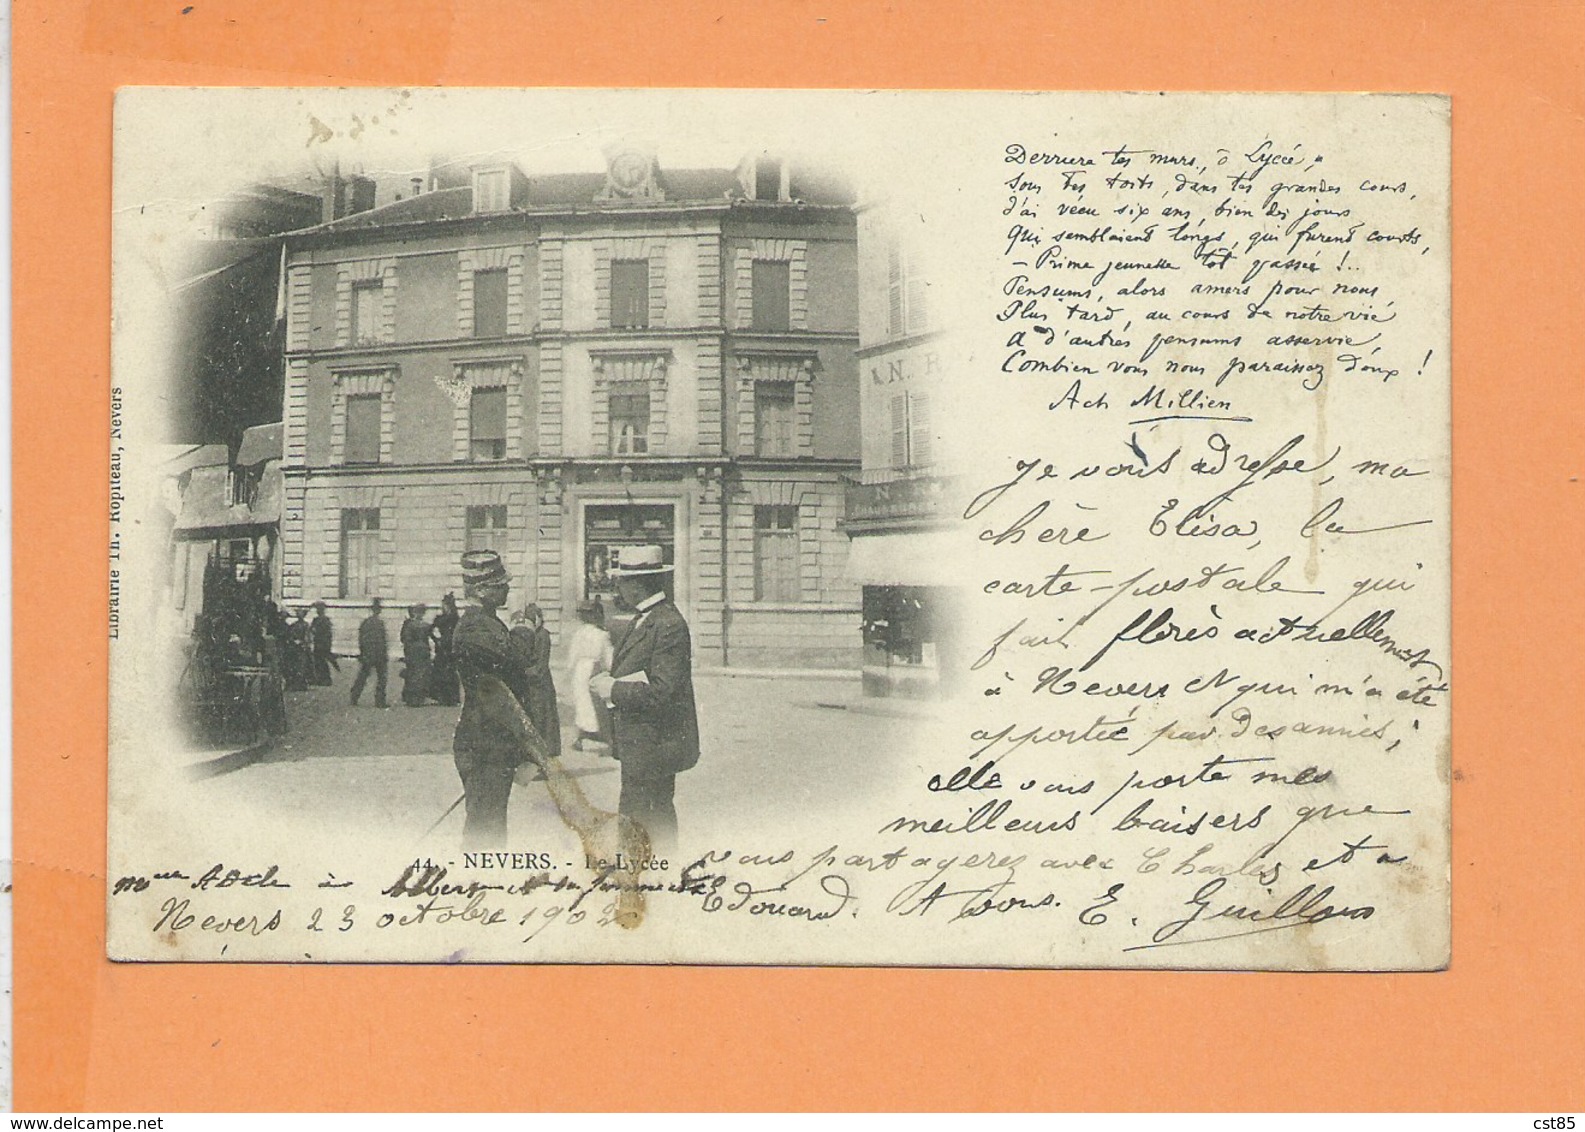 Derriere tes murs, ô Lycée,
Sous tes toits, dans tes grandes cours,
J'ai vécu six ans, bien des jours
Qui semblaient longs, qui furent courts,
- Prime jeunesse tôt passée !..
Pensums, alors amers pour nous,
Plus tard, au cours de notre vie
A d'autres pensums asservie,
Combien vous nous paraissez doux !
Ach Millien
Je vous adresse, ma
chère Elisa, la
carte-postale qui
fait florès actuellement
à Nevers et qui m'a été
apportée par des amies;
elle vous porte mes
meilleurs baisers que
vous partagerez avec Charles et a
Edouard. A vous. E. Guillon
Mme Adele à Albert et sa
Nevers 23 octobre 1902
44. - NEVERS. - Le Lycée
Librairie Th. Ropiteau, Nevers
N
cst85